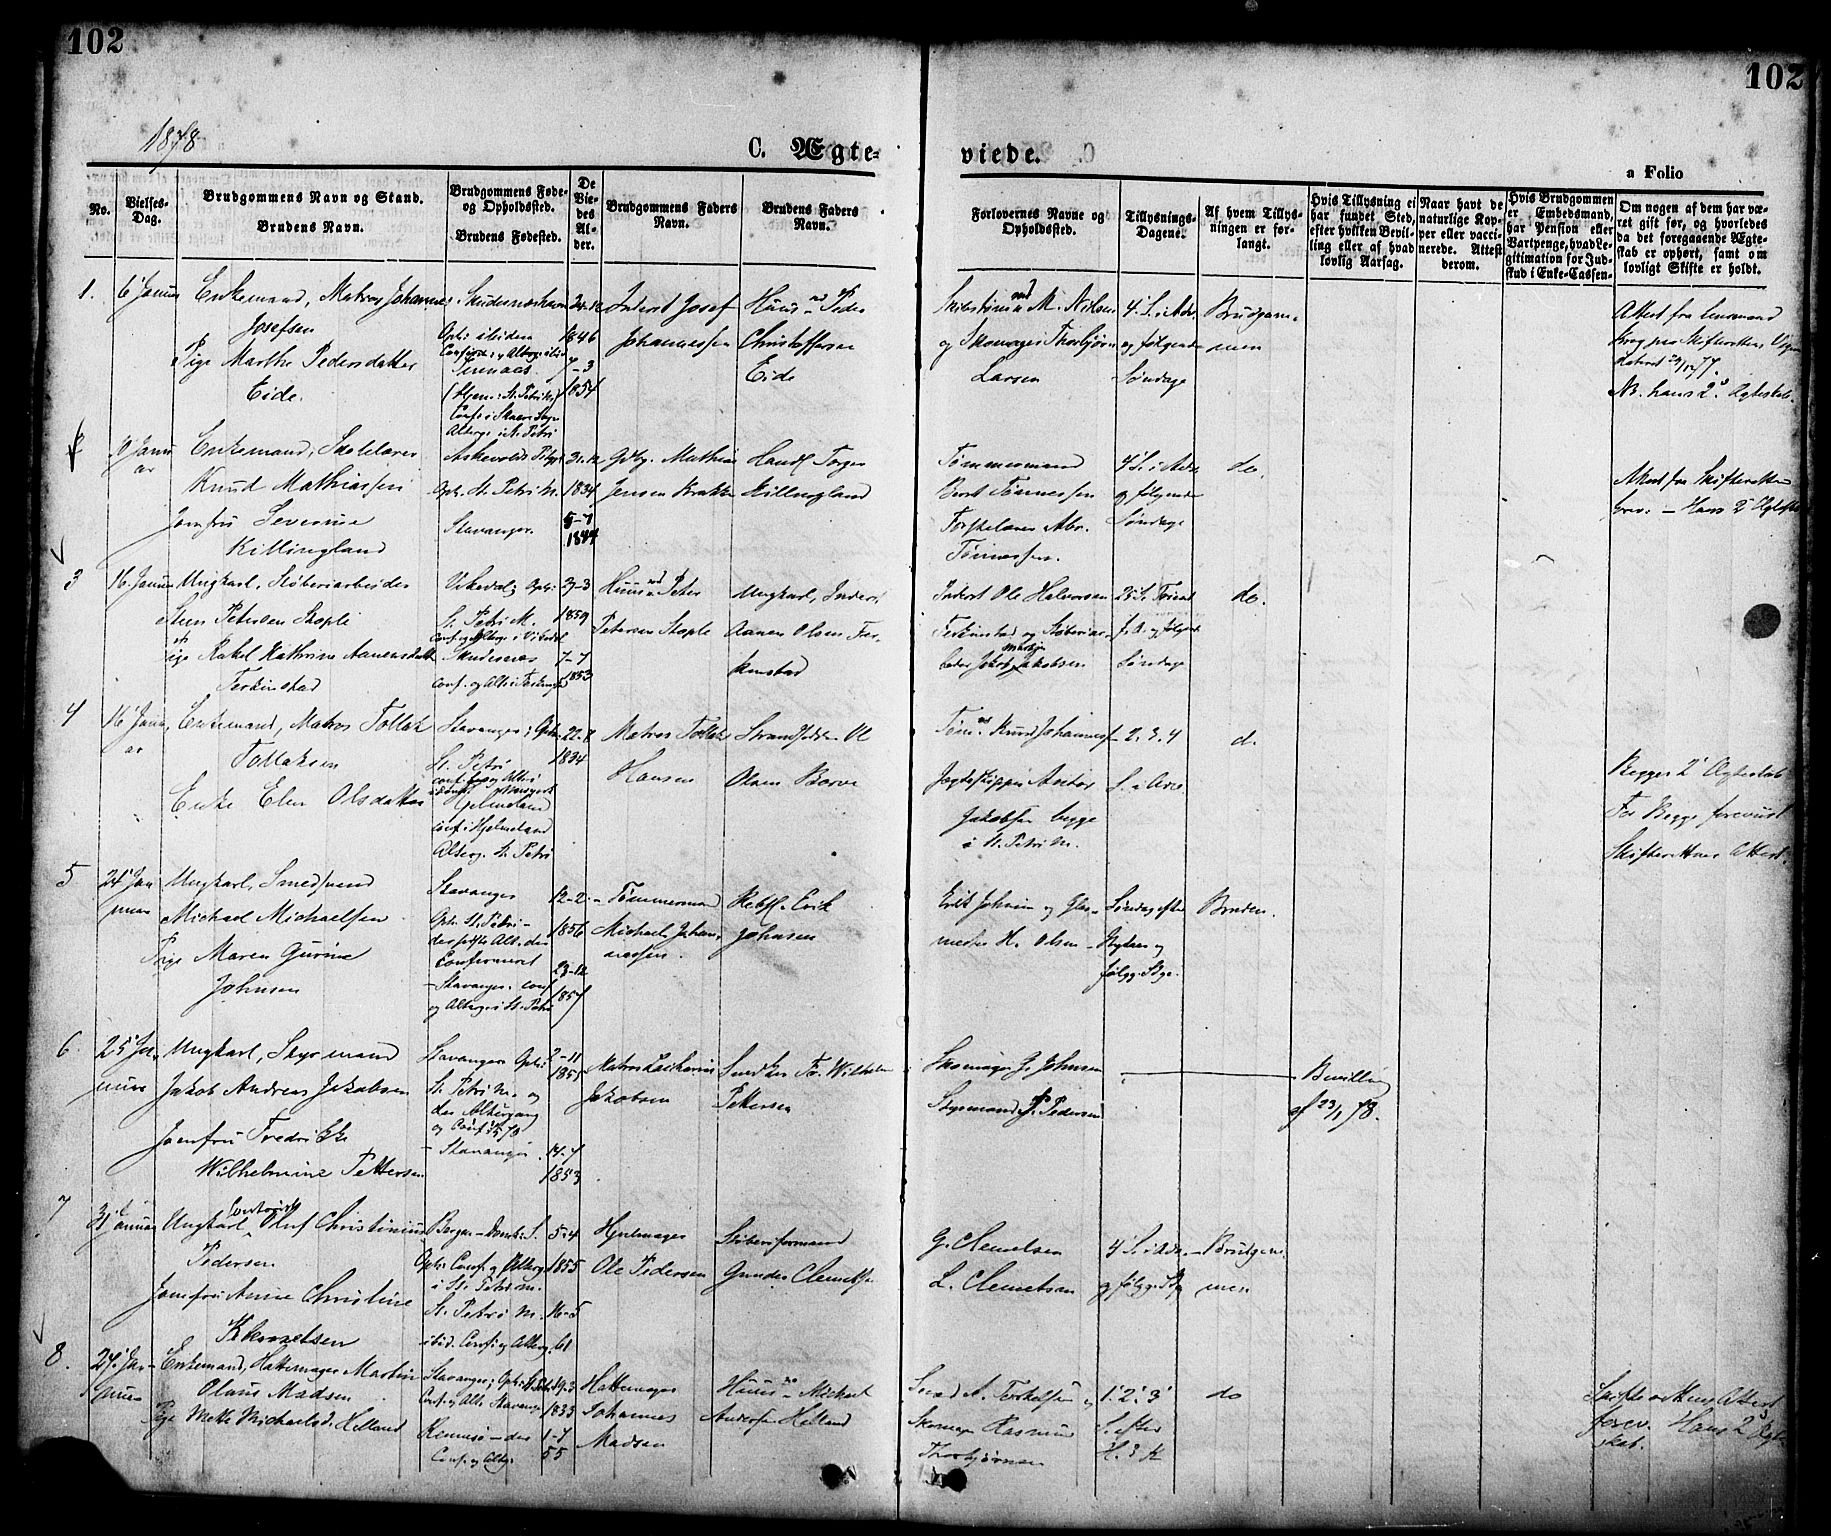 102
102
1878
C. Ægte-
viede.
a Folio
No.
Vielses-
Dag.
Brudgommens Navn og Stand.
Brudens Navn.
Brudgommens Føde-
og Opholdssted.
Brudens Fødested.
De
Vie-
des
Al-
der.
Brudgommens Faders
Navn.
Brudens Faders
Navn.
Forlovernes Navne og
Opholdssted.
Tillysnings-
Dagene.
Af hvem Tillys-
ningen er for-
langt.
Hvis Tillysning ei
har fundet Sted,
efter hvilken Bevil-
ling eller af hvad
lovlig Aarsag.
Naar havt de
naturlige Kop-
per eller vacci-
nerede. Attest
derom.
Hvis Brudgommen
er Embedsmand,
har Pension eller
Vartpenge, hvad Le-
gitimation for Ind-
skud i Enke-Cassen
Om nogen af dem har væ-
ret gift før, og hvorledes
da det foregaaende Ægte-
skab er ophørt, samt om
lovligt Skifte er holdt.
1.
6 Januar
Enkemand, Matros Johannes
Josefsen
Pige Marthe Pedersdatter
Eide.
Skudesnæshavn
Oph: ibidem
Conf. og Alterg. ibid
(Hjem: St. Petri M.)
Conf. i Skaare Sogn
Alterg. i St. Petri
24-12
1846
7-3
1854
Inderst Josef
Johannessen
Huusmd Peder
Christoffersen
Eide
M. Nilsen
og Skomager Thorbjørn
Larsen
4 S. i Adv.
og følgende
Søndage
Brudgom-
men
Attest fra Lensmand
Krog paa Skifterettens Vegne
dateret 29/12 77.
NB. hans 2t Ægteskab.
2
10 Janu
ar
Enkemand, Skolelærer
Knud Mathiassen
Jomfru Severine
Killingland
Askevolds Pgj.
Oph. St. Petri M.
Stavanger.
31-12
1834
5-7
1844
Gdbr. Mathias
Jensen Krakke
Handl Torger
Killingland
Tømmermand
Berent Tønnessen
Forskolelærer Abr.
Tønnessen.
4 S. i Adv.
og følgende
Søndage
do.
Attest fra Skifteretten
forev. - Hans 2t Ægtesk.
3
16. Januar
Ungkarl, Støberiarbeider
Sten Petersen Stople
Pige Rakel Kathrine Aanensdatter
Ferkinstad
Vikedal; Oph:
St. Petri M.
Conf. og Alterg. i Vikedal
Skudesnæs
Conf. og Alt. i Ferkingst.
9-3
1859
7-7
1853
Huusmd Peter
Petersen Stople
Ungkarl, Inderst
Aanen Olsen Fer-
kinstad
Inderst Ole Halvorsen
Ferkinstad og Støberiar-
beider Jakob Jakobsen
2 S.
f. J. og følgende
Søndage
do.
4
16 Janu
ar
Enkemand, Matros Tollak
Tollaksen
Enke Elen Olsdatter
Stavanger; Oph:
St. Petri
Hjelmeland
Conf. i Hjelmeland
Alterg. St. Petri
22-8
1834
Matros Tollak
Hansen
Strandsidder Ol
Olsen Børve
Tømmd Knud Johannesen
Jægtskipper Anton
Jakobsen begge
i St. Petri M.
2. 3. 4
S. i Adv.
d.
Begges 2t Ægteskab
For Begge forevist
Skifterettens Attest.
5
24 Jan
uar
Ungkarl, Smedsvend
Michael Michaelsen
Pige Maren Gurine
Johnsen
Stavanger
Oph. St. Petri -
Confirmeret
- Stavanger. Conf
og Alterg. i St. Petri
12-2-
1856
23-12
1857
Tømmermand
Michael Johan-
nessen.
Rebsl. Erik
Johnsen
Erik Johnsen og Glas-
mester H. Olsen
Søndag efter
Nytaar og
følg. S.
Bruden.
6.
25 Ja-
nuar
Ungkarl, Styrmand
Jakob Andreas Jakobsen
Jomfru Fredrikke
Wilhelmine Pettersen
Stavanger Oph:
St. Petri M. og
der Altergang
og Conf. 1870
- Stavanger
2-11
1851
14-7
1853
Matros Zacharias
Jakobsen
Snedker Fr. Wilhelm
Pettersen
Skomager J. Johnsen
Styrmand P. Pedersen
Bevilling
af 23/1 78.
7
31 Januar
Ungkarl, Oluf Christinius
Pedersen
Jomfru Anne Christine
Klemetsen
Bergen - Domk. S.
Oph. Conf. og Alterg.
i St. Petri M.
St. Petri M.
ibid. Conf. og Alterg.
5-4
1855
16-5
61
Hjulmager
Ole Pedersen
Støberiformand
Gunder Clemetsen
G. Clemetsen
L. Clemetsen
4 S. i Adv.
og følg.
Brudgom
men
8.
27. Ja-
nuar
Enkemand, Hattemager Martin
Olaus Madsen
Pige Mette Michaelsd. Helland
Stavanger; Oph:
Conf. og Alt. Stavanger
Rennesø - der
Conf. og Alterg.
19-3
1833
1-7
55
Hattemager
Johannes
Madsen
Huusmd Michael
Andersen Helland
Smed A. Torkelsen og
Skomager Rasmus
Thorbjørnsen
1. 2. 3
S. efter
H. 3 K
do
Skifterettens Attest
forev. Hans 2t Ægte
skab.